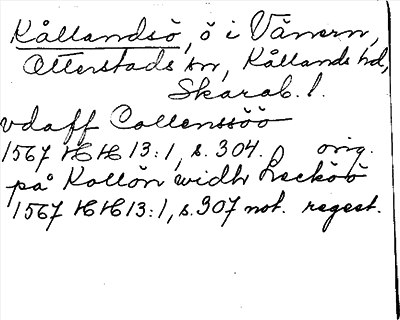 Kållandsö, ö i Vänern,
Otterstads sn, Kållands hd,
Skarab. l.
vdaff Collenssöö
1567 HH 13:1, s. 304. orig.
på Kollön widh Lecköö
1567 HH 13:1, s. 307 not. regest.